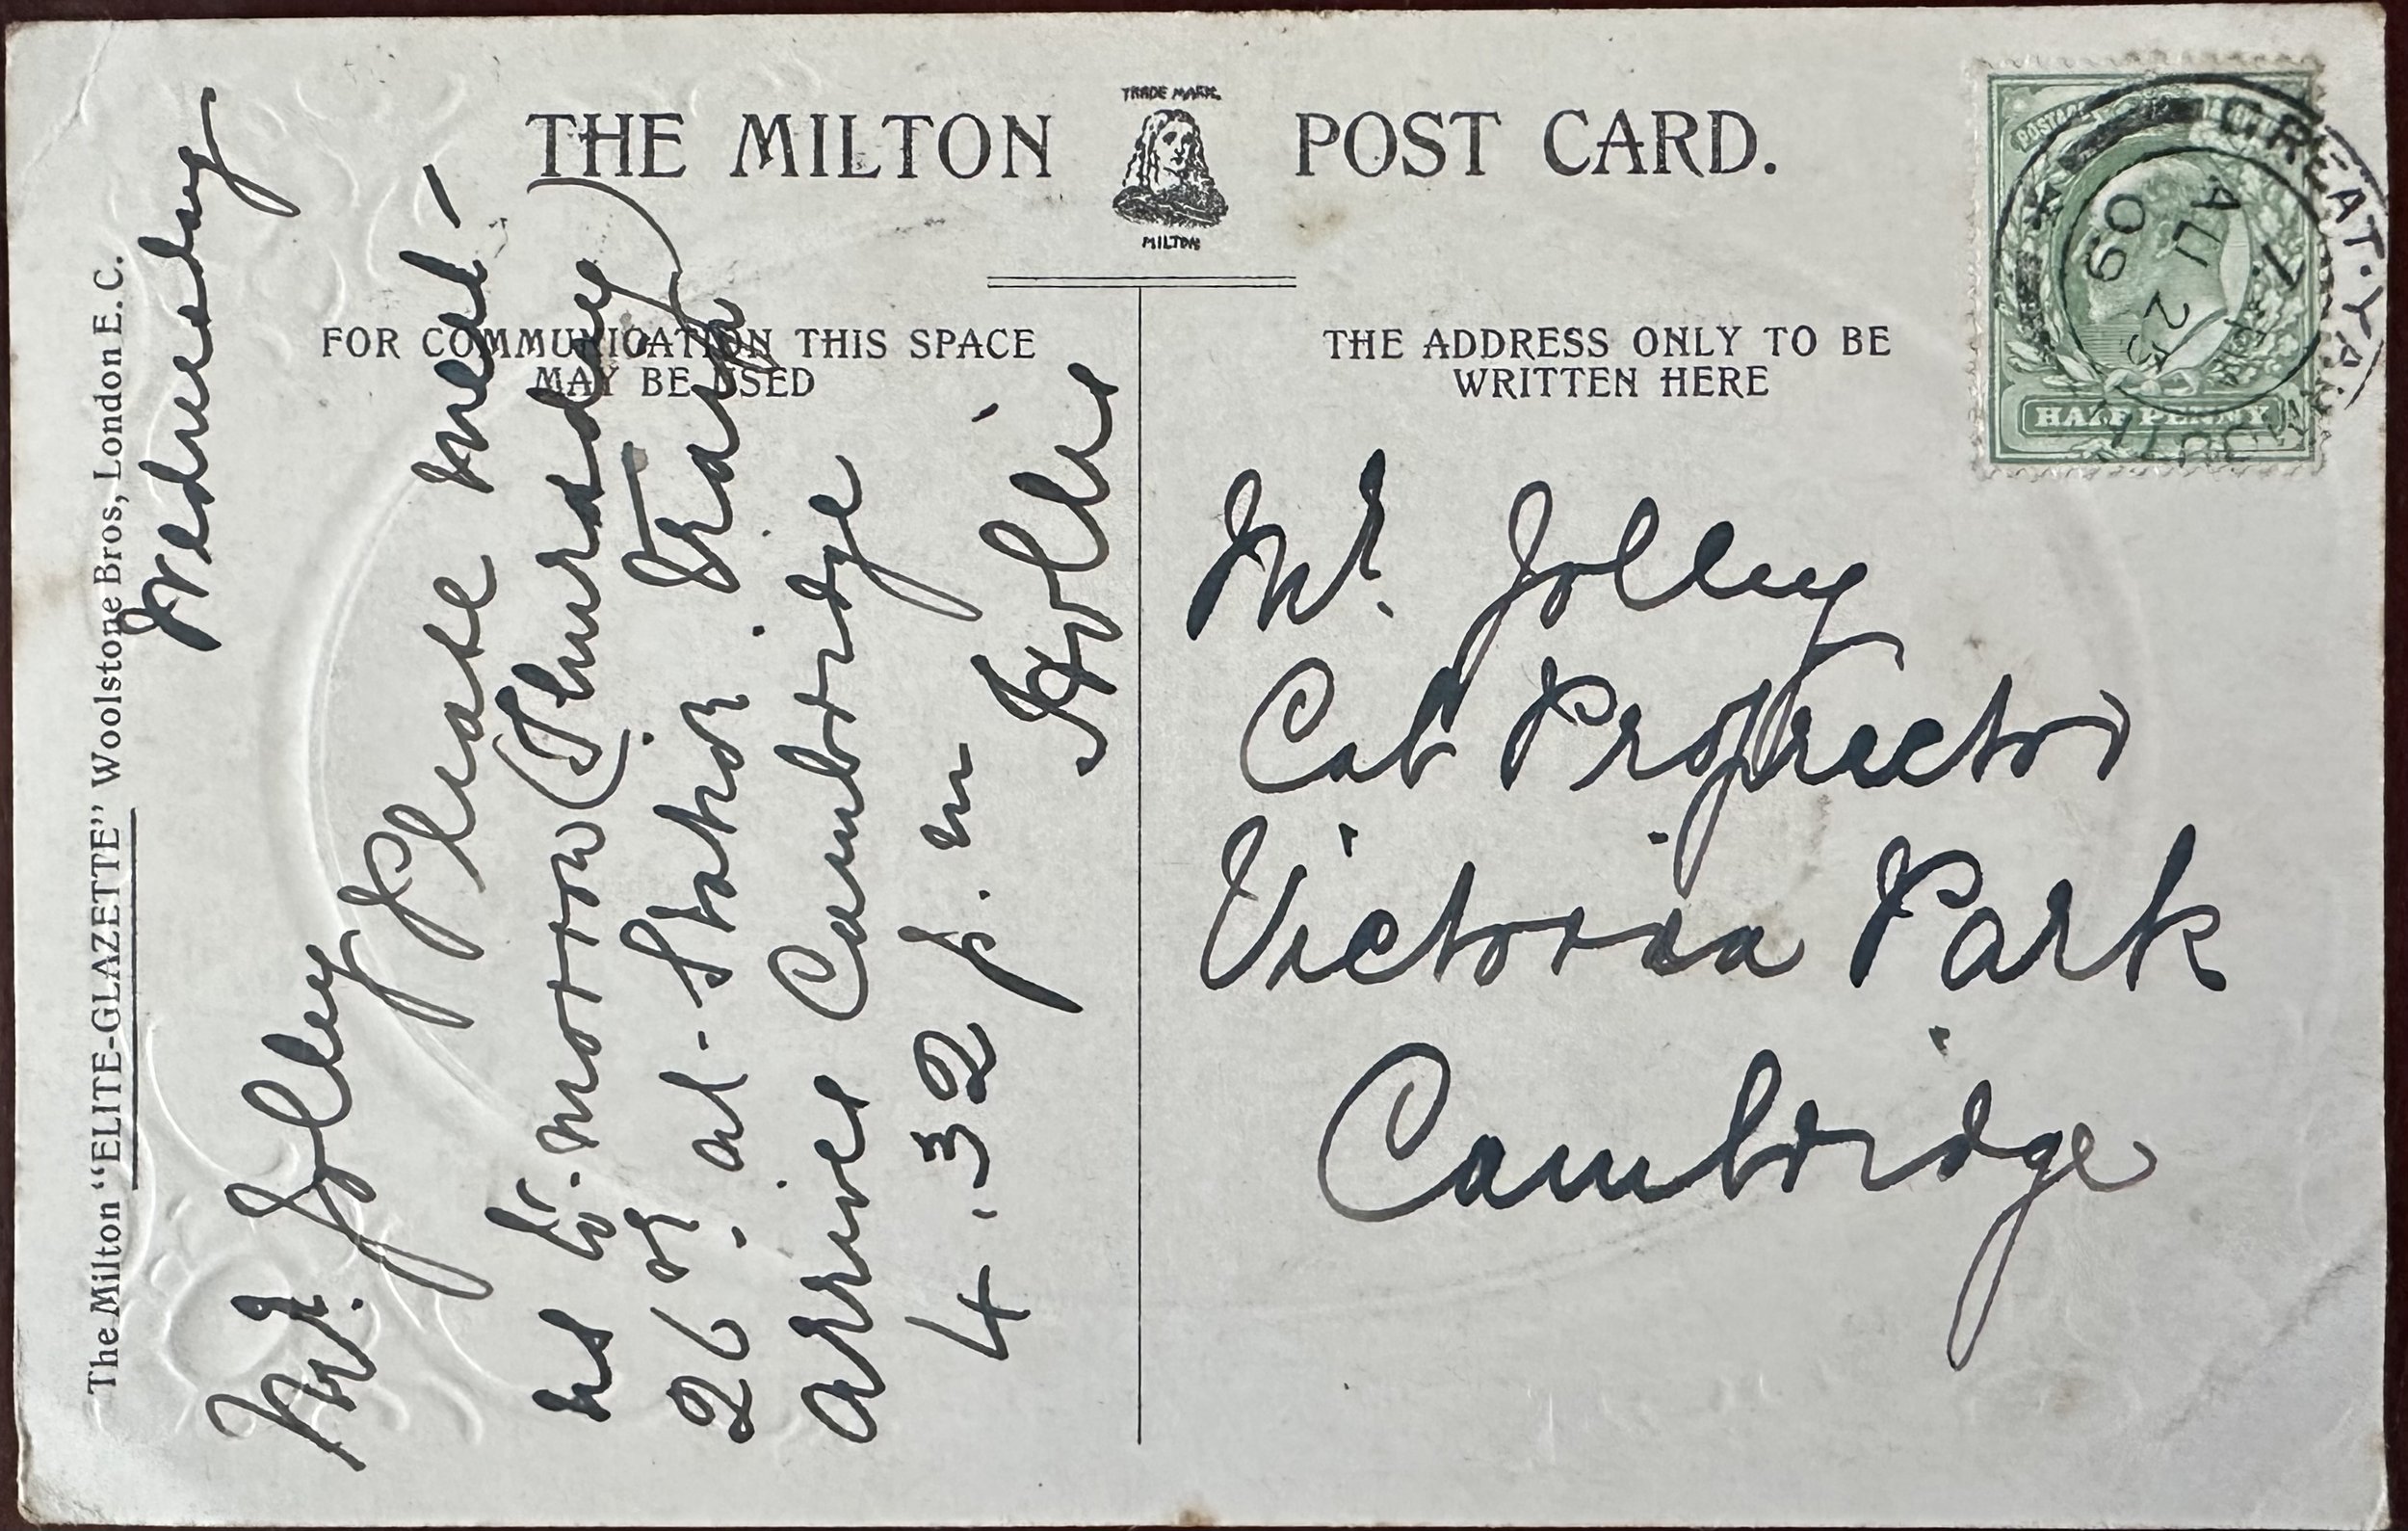 THE MILTON POST CARD.
TRADE MARK.
MILTON
FOR COMMUNICATION THIS SPACE
MAY BE USED
THE ADDRESS ONLY TO BE
WRITTEN HERE
The Milton "ELITE-GLAZETTE" Woolstone Bros, London E.C.
Wednesday
Mr. Jolley Please meet -
us to-morrow (Thursday)
26th at Station. Train
arrives Cambridge
4.32 p.m
Mr. Jolley
Cab Proprietor
Victoria Park
Cambridge
POSTAGE
HALF PENNY
GREAT YA
AU 25
09